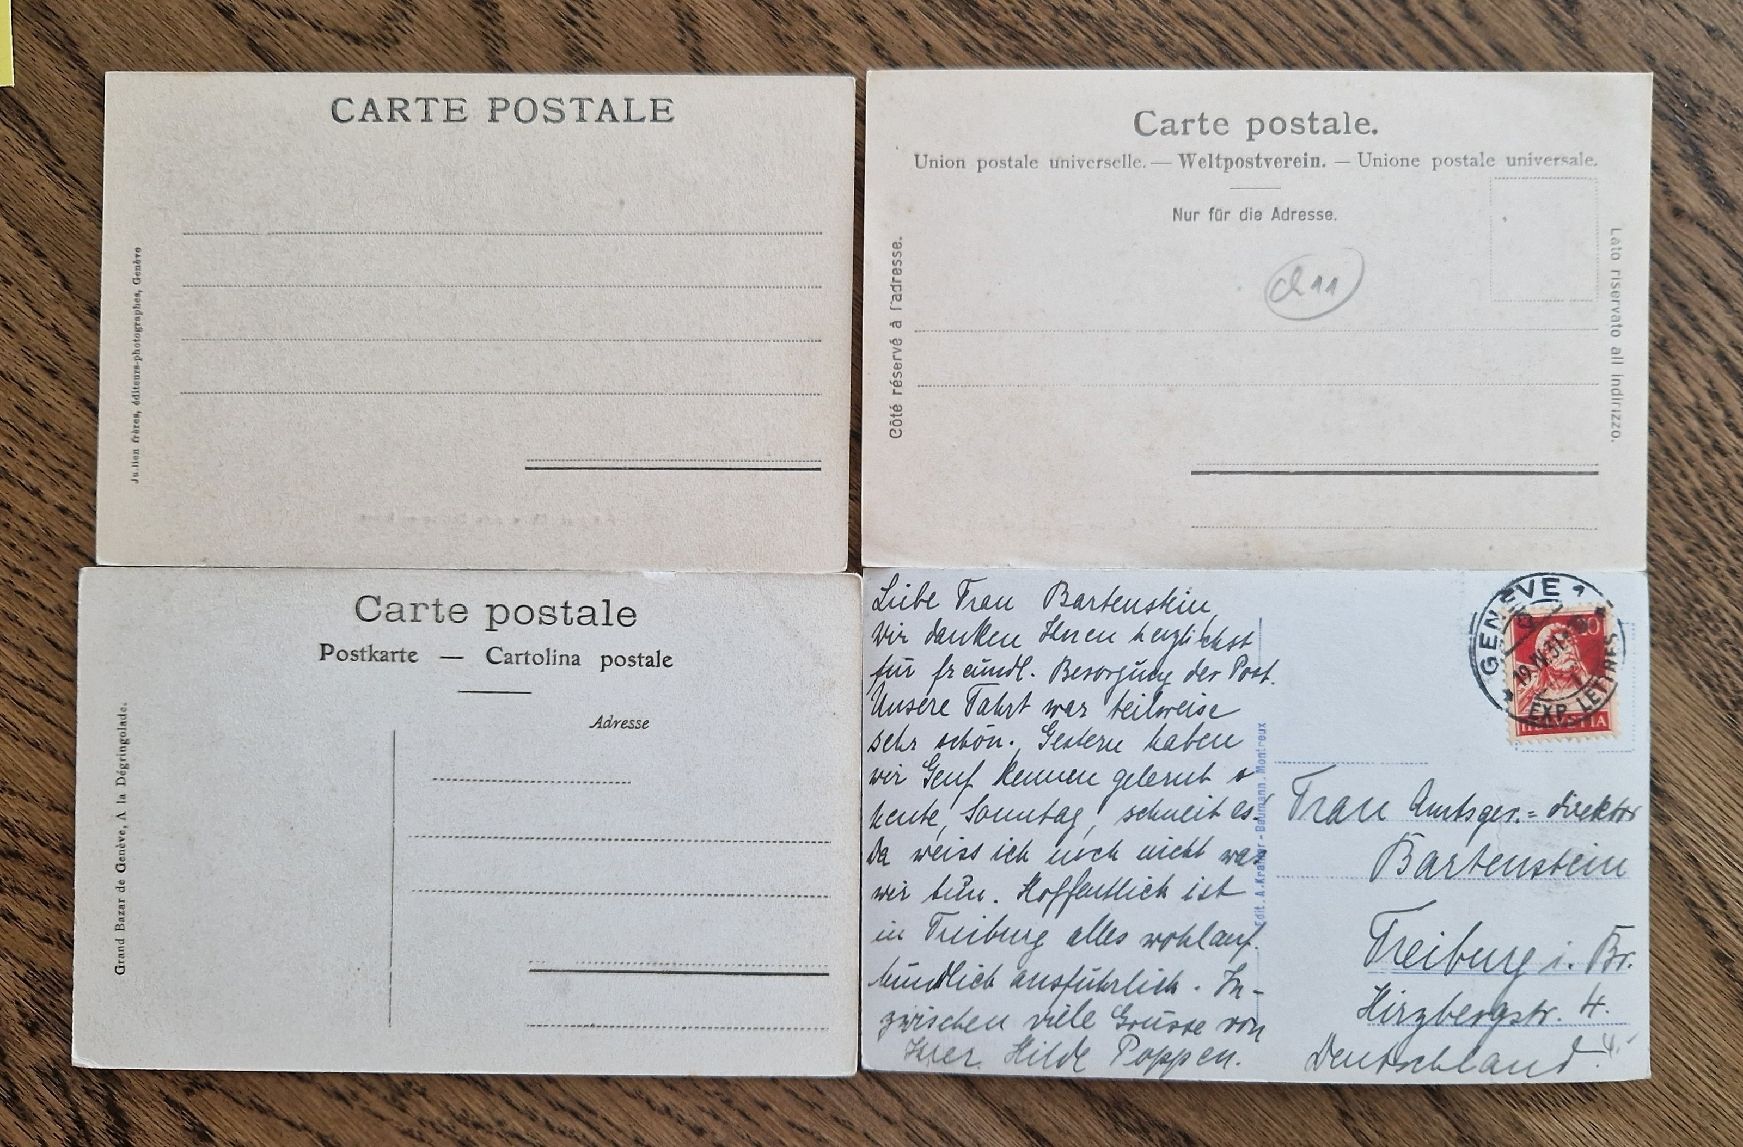 CARTE POSTALE
Julien frères, éditeurs-photographes, Genève
Carte postale.
Union postale universelle. — Weltpostverein. — Unione postale universale.
Nur für die Adresse.
Côté réservé à l'adresse.
Lato riservato all indirizzo.
Carte postale
Postkarte — Cartolina postale
Adresse
Grand Bazar de Genève, A la Dégringolade.
Liebe Frau Bartenstein,
wir danken Ihnen herzlichst
für freundl. Besorgung der Post.
Unsere Fahrt war teilweise
sehr schön. Gestern haben
wir Genf kennen gelernt &
heute, Sonntag, schneit es.
Da weiss ich noch nicht was
wir tun. Hoffentlich ist
in Freiburg alles wohlauf.
Mündlich ausführlich. In-
zwischen viele Grüsse von
Ihrer Hilde Poppen.
Edit. A. Kramer-Baumann, Montreux
GENÈVE 1
EXP. LETTRES
HELVETIA
Frau Amtsger.=direktor
Bartenstein
Freiburg i. Br.
Hirzbergstr. 4.
Deutschland.
4.-